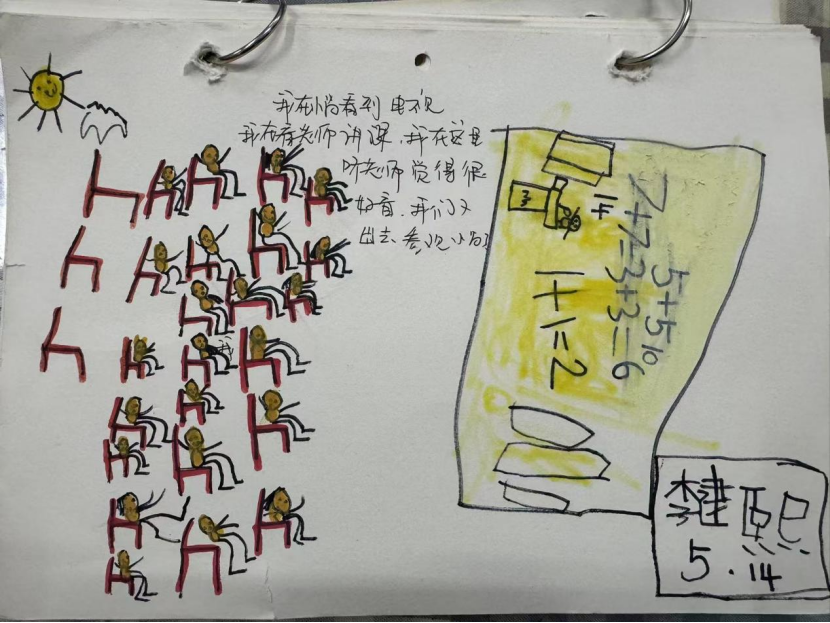 我在悄看到电视
我在看老师讲课.我在这里
听老师觉得很
好音.我们又
出去、参观小
我
7+7=14
3+3=6
5+5
10
1+1=2
李建熙
5.14